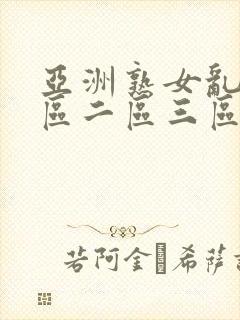 亞洲熟女亂
區二區三區
若阿金·希萨